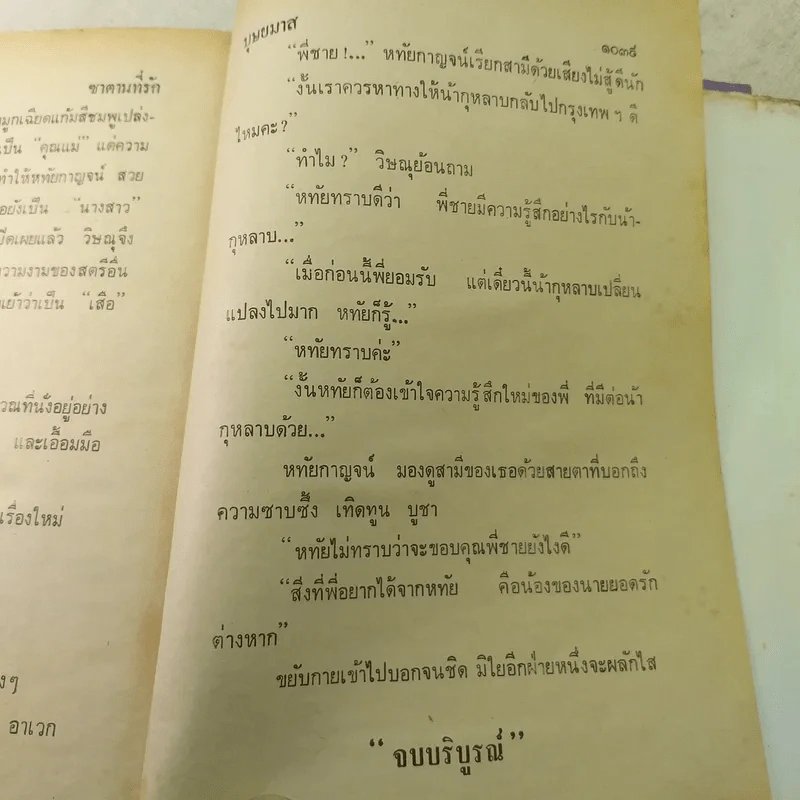 ซาตานที่รัก
มูกเฉียดแก้มสีชมพูเปล่ง-
เป็น “คุณแม่” แต่ความ
ทำให้หทัยกาญจน์ สวย
อยังเป็น “นางสาว”
ปิดเผยแล้ว วิษณุจึง
ความงามของสตรีอื่น
เย้าว่าเป็น “เสือ”
วณที่นั่งอยู่อย่าง
และเอื้อมมือ
เรื่องใหม่
งๆ
อาเวก
บุษยมาส
๑๐๓๕
“พี่ชาย !...” หทัยกาญจน์เรียกสามีด้วยเสียงไม่สู้ดีนัก
“งั้นเราควรหาทางให้น้ากุหลาบกลับไปกรุงเทพ ฯ ดี
ไหมคะ ?”
“ทำไม ?” วิษณุย้อนถาม
“หทัยทราบดีว่า พี่ชายมีความรู้สึกอย่างไรกับน้า-
กุหลาบ...”
“เมื่อก่อนนี้พี่ยอมรับ แต่เดี๋ยวนี้น้ากุหลาบเปลี่ยน
แปลงไปมาก หทัยก็รู้...”
“หทัยทราบค่ะ”
“งั้นหทัยก็ต้องเข้าใจความรู้สึกใหม่ของพี่ ที่มีต่อน้า
กุหลาบด้วย...”
หทัยกาญจน์ มองดูสามีของเธอด้วยสายตาที่บอกถึง
ความซาบซึ้ง เทิดทูน บูชา
“หทัยไม่ทราบว่าจะขอบคุณพี่ชายยังไงดี”
“สิ่งที่พี่อยากได้จากหทัย คือน้องของนายยอดรัก
ต่างหาก”
ขยับกายเข้าไปบอกจนชิด มิใยอีกฝ่ายหนึ่งจะผลักไส
“ จบบริบูรณ์ ”